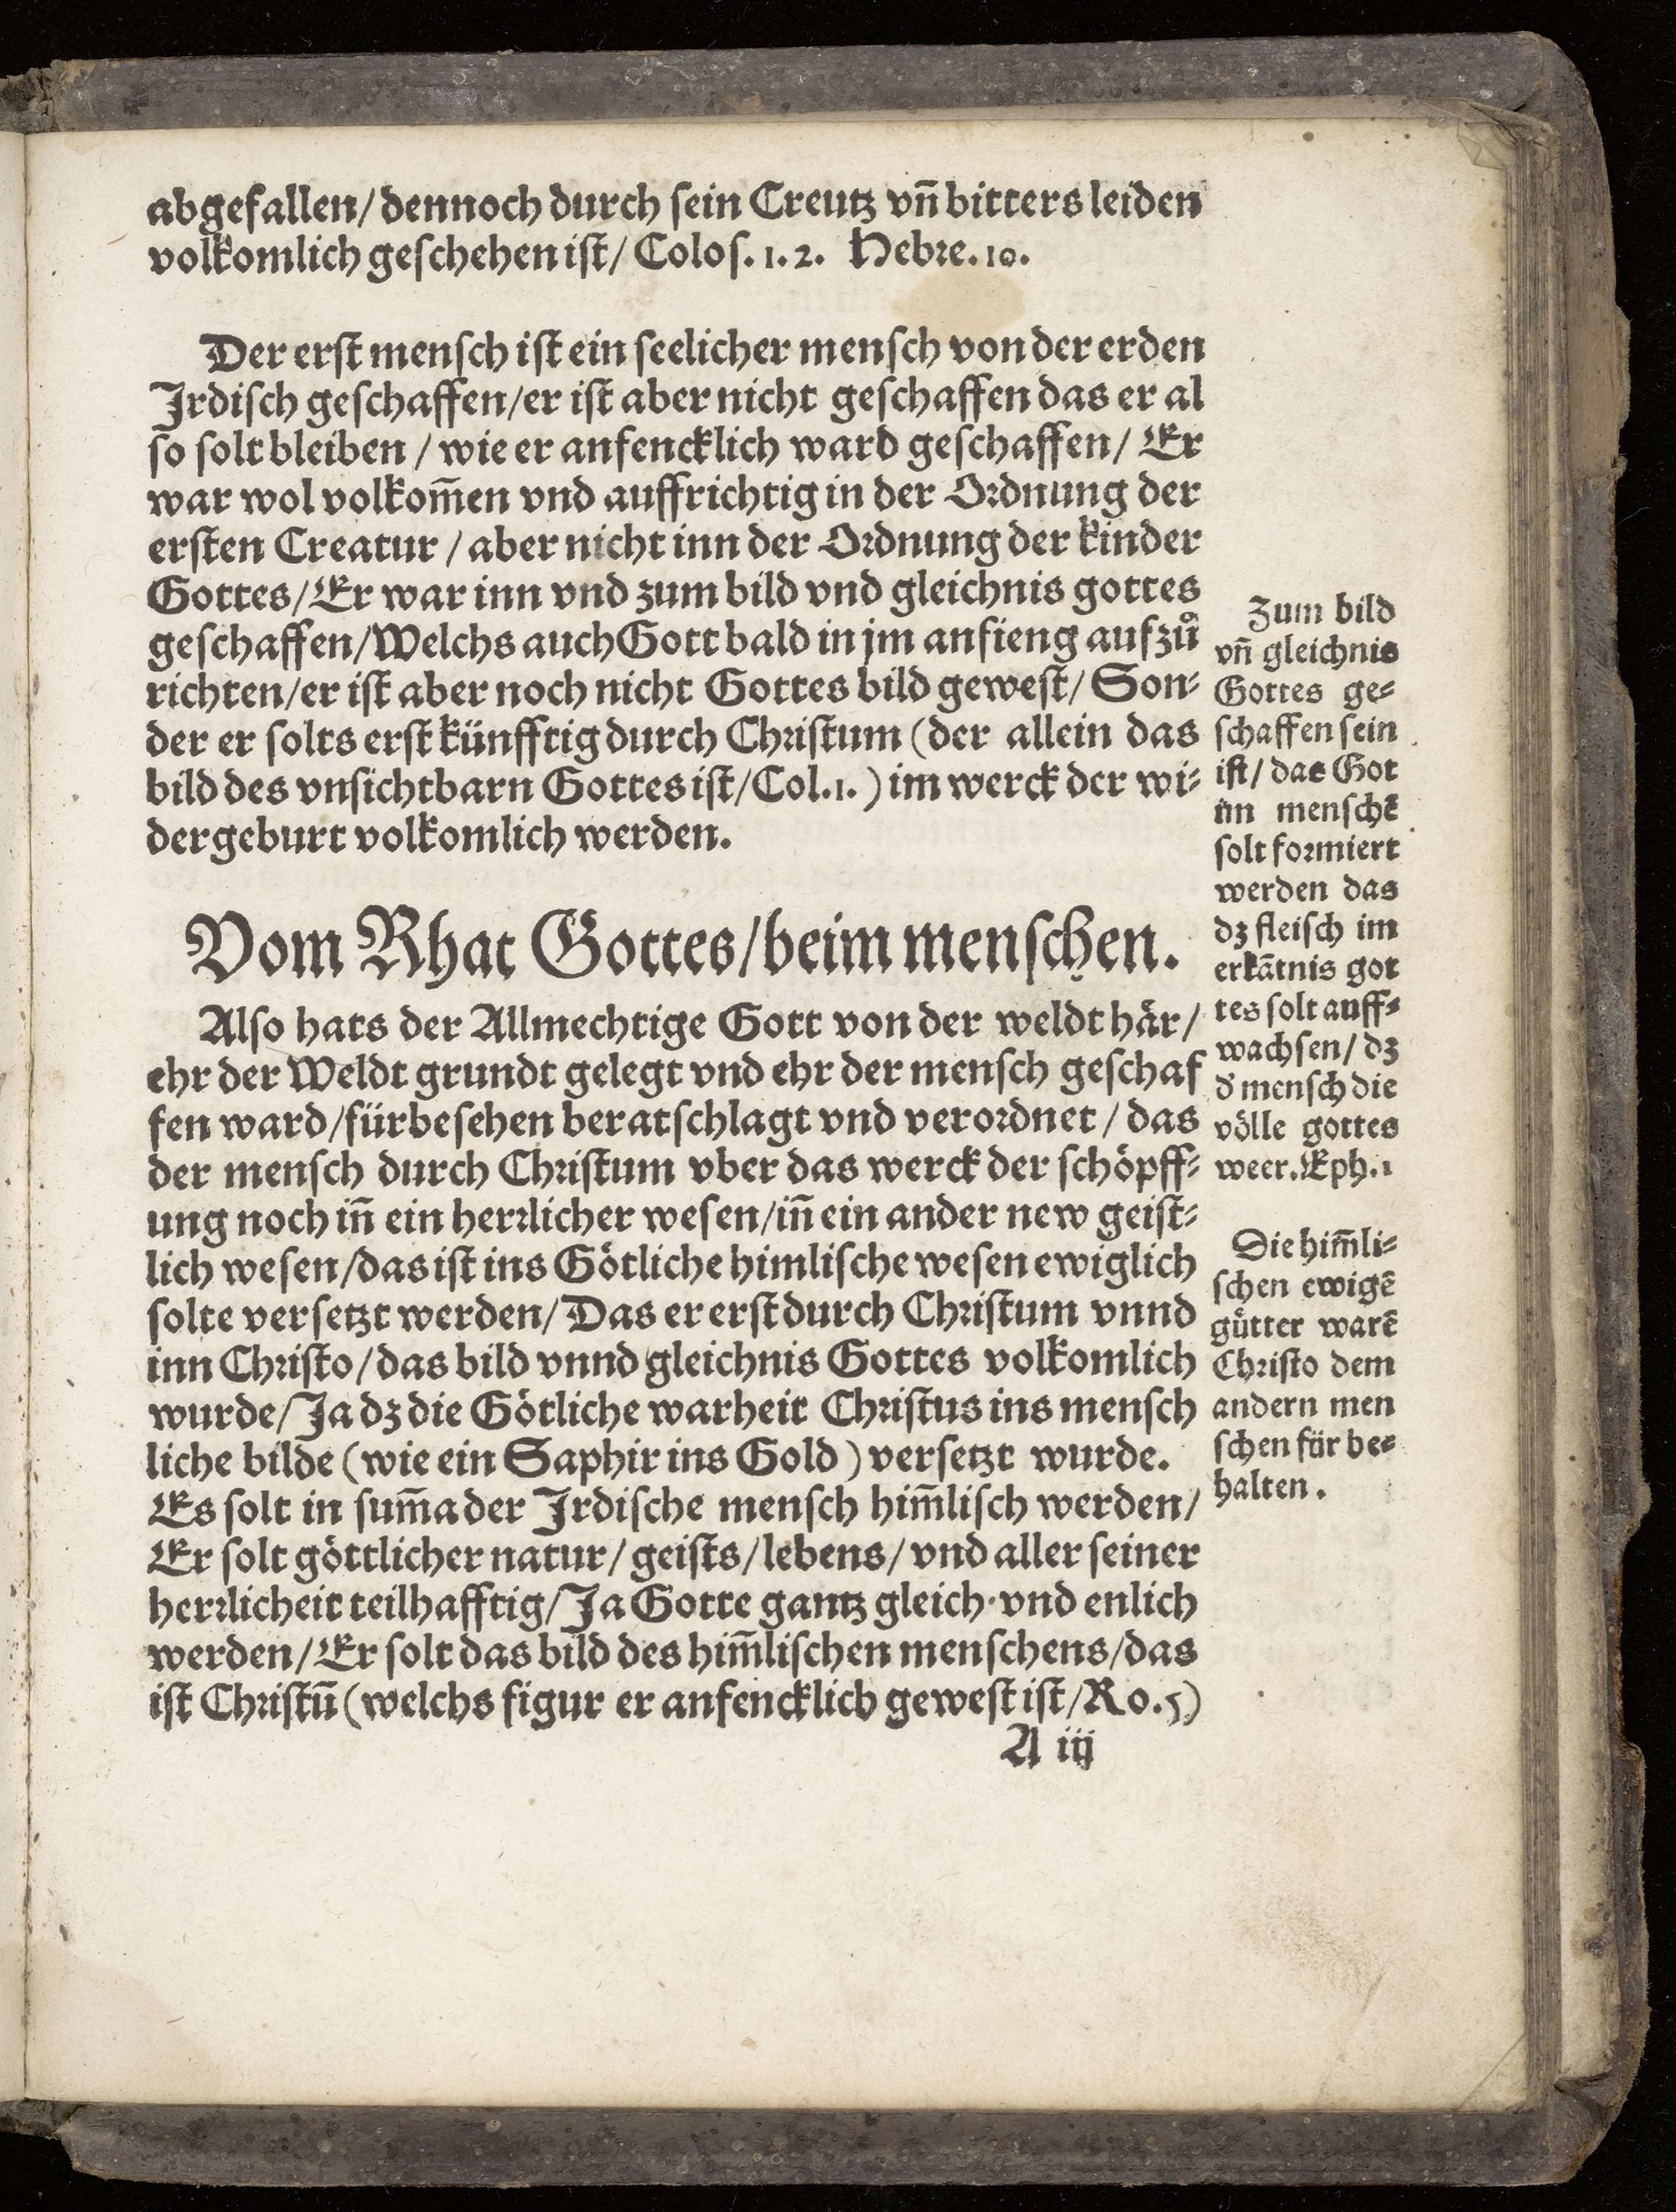 abgefallen/ dennoch durch sein Creutz vñ bitters leiden
volkomlich geschehen ist/ Colos. 1. 2. Hebre. 10.
Der erst mensch ist ein seelicher mensch von der erden
Jrdisch geschaffen/er ist aber nicht geschaffen das er al
so solt bleiben / wie er anfencklich ward geschaffen/ Er
war wol volkom̄en vnd auffrichtig in der Ordnung der
ersten Creatur / aber nicht inn der Ordnung der kinder
Gottes/Er war inn vnd zum bild vnd gleichnis gottes
geschaffen/Welchs auch Gott bald in jm anfieng aufzů
richten/er ist aber noch nicht Gottes bild gewest/ Son⸗
der er solts erst künfftig durch Christum (der allein das
bild des vnsichtbarn Gottes ist/Col.1.) im werck der wi⸗
dergeburt volkomlich werden.
Vom Rhat Gottes/beim menschen.
Also hats der Allmechtige Gott von der weldt hår/
ehr der Weldt grundt gelegt vnd ehr der mensch geschaf
fen ward/fürbesehen beratschlagt vnd verordnet / das
der mensch durch Christum vber das werck der schöpff⸗
ung noch iñ ein herrlicher wesen/iñ ein ander new geist⸗
lich wesen/das ist ins Götliche himlische wesen ewiglich
solte versetzt werden/ Das er erst durch Christum vnnd
inn Christo/das bild vnnd gleichnis Gottes volkomlich
wurde/Ja dz die Götliche warheit Christus ins mensch
liche bilde (wie ein Saphir ins Gold) versetzt wurde.
Es solt in sum̄a der Jrdische mensch him̄lisch werden/
Er solt göttlicher natur/ geists/lebens/ vnd aller seiner
herrlicheit teilhafftig/Ja Gotte gantz gleich vnd enlich
werden/Er solt das bild des him̄lischen menschens/das
ist Christū (welchs figur er anfencklich gewest ist/Ro.5)
A iij
Zum bild
vñ gleichnis
Gottes ge⸗
schaffen sein
ist/ das Got
im menschē
solt formiert
werden das
dz fleisch im
erkātnis got
tes solt auff⸗
wachsen/ dz
d' mensch die
völle gottes
weer. Eph.1
Die him̄li⸗
schen ewigē
gůtter warē
Christo dem
andern men
schen für be⸗
halten.